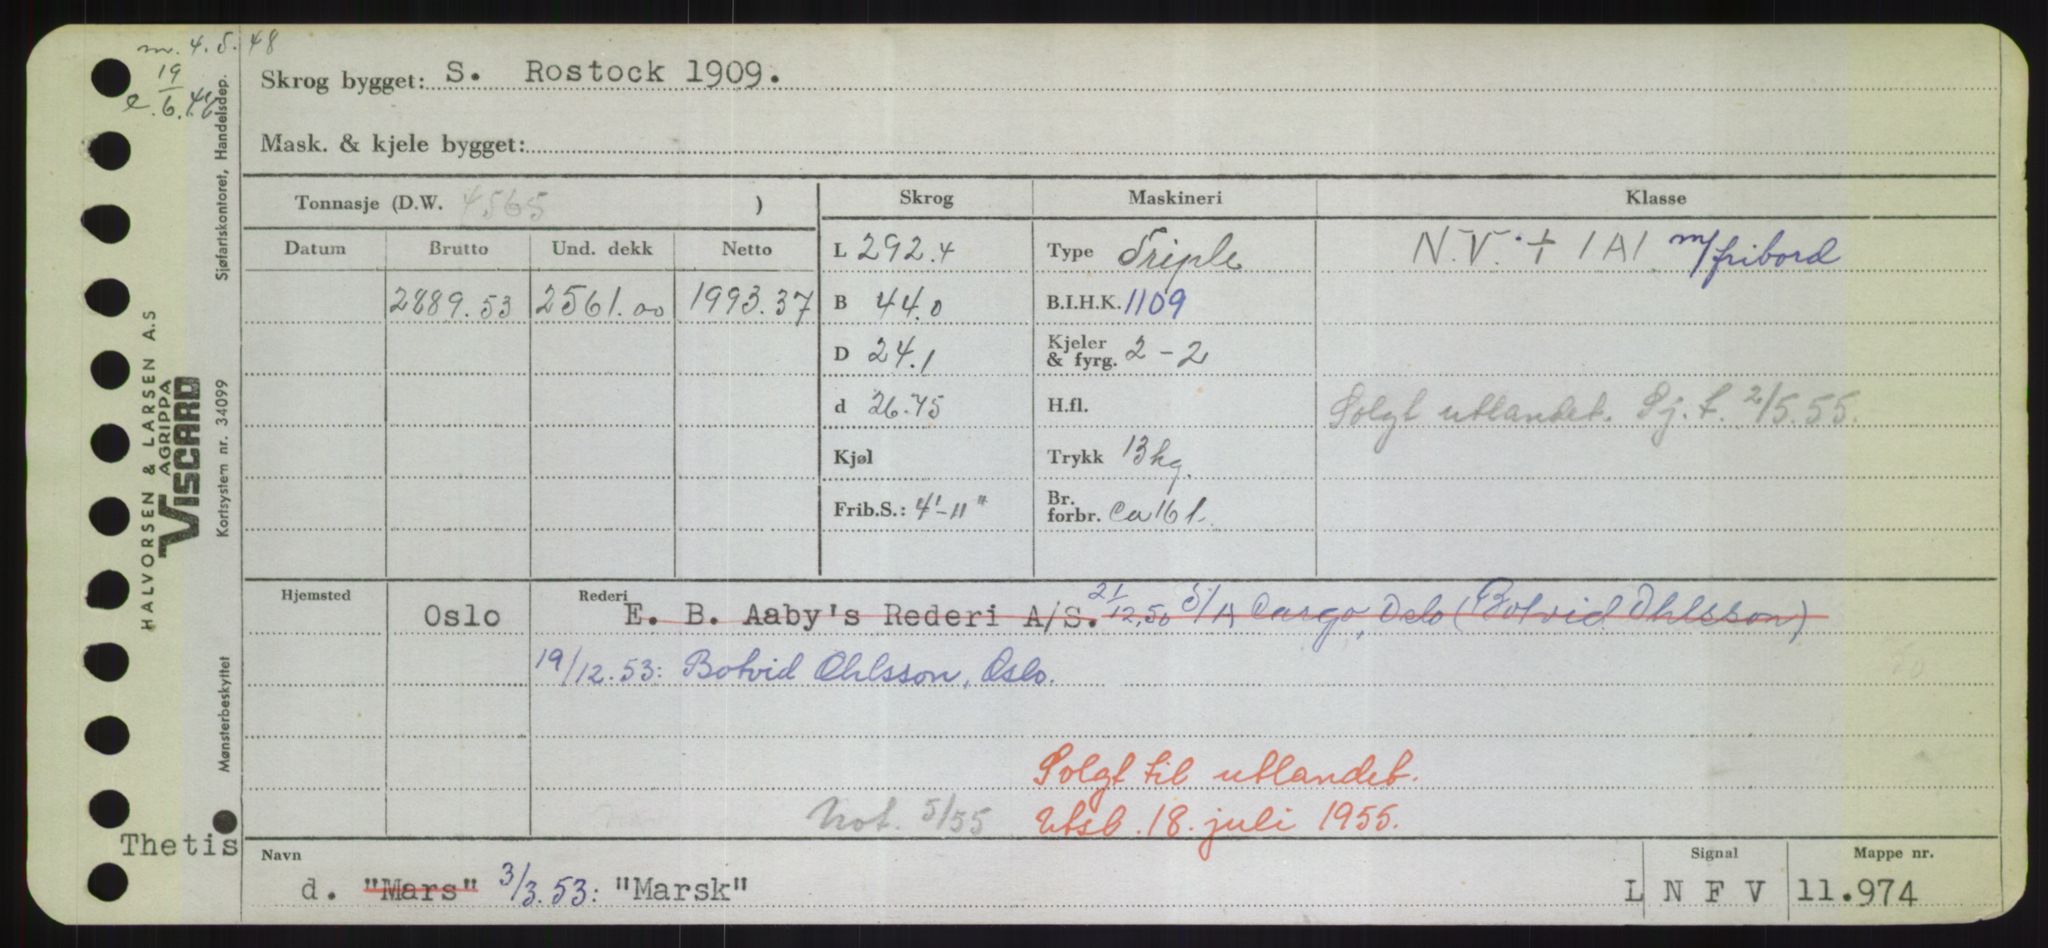 m. 4.5.48
19
e. 6.46
Skrog bygget: S. Rostock 1909.
Mask. & kjele bygget:
Tonnasje (D.W. 4565 )
Skrog Maskineri Klasse
Datum Brutto Und. dekk Netto
L 292.4 Type Triple N.V. + 1A1 m/fribord
2889.53 2561.00 1993.37 B 44.0 B.I.H.K. 1109
D 24.1 Kjeler & fyrg. 2-2
d 26.75 H.fl. Solgt utlandet. Sj.f. 2/5.55.
Kjøl Trykk 13 kg.
Frib.S.: 4'-11" Br. forbr. ca 16 t.
Hjemsted Oslo Rederi E. B. Aaby's Rederi A/S. 21/12.50 S/A Cargo, Oslo (Botvid Ohlsson)
19/12.53: Botvid Ohlsson, Oslo.
Solgt til utlandet.
Not. 5/55 Utsl. 18. juli 1955.
Thetis
Navn Signal Mappe nr.
d. "Mars" 3/3.53: "Marsk" L N F V 11.974
HALVORSEN & LARSEN A.S
AGRIPPA
VISCARD
Sjøfartskontoret, Handelsdep.
Kortsystem nr. 34099
Mønsterbeskyttet